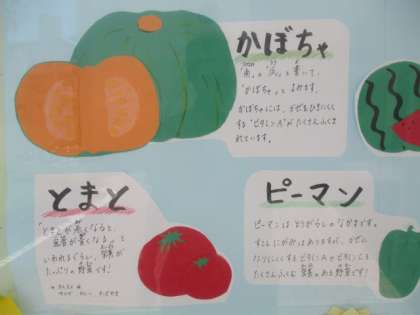 かぼちゃ
「南」と「瓜」と書いて、
"かぼちゃ"と よみます。
かぼちゃには、かぜをひきにくく
する"ビタミンA"が たくさんふくま
れています。
とまと
「とまとが赤くなると、
医者が青くなる」と
いわれるぐらい、栄養が
たっぷりの野菜です!
ピーマン
ピーマンは とうがらしの なかまです。
すこしにがみはありますが、かぜに
なりにくくする ビタミンAや ビタミンCも
たくさんふくむ 栄養のある野菜です!